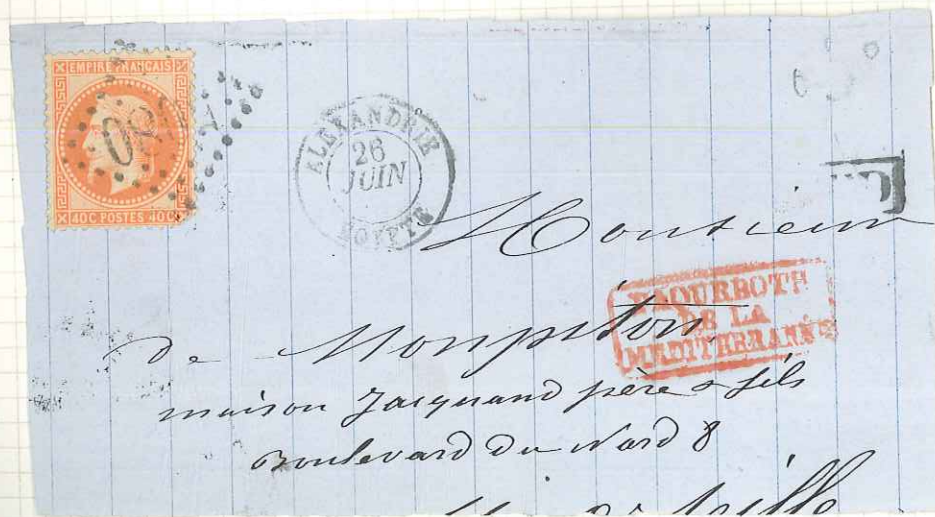 EMPIRE FRANÇAIS
40C POSTES 40C
ALEXANDRIE
26
JUIN
EGYPTE
Monsieur
PAQUEBOTS
DE LA
MEDITERRANÉE
de
maison Jacquand père & fils
Boulevard du Nord 8